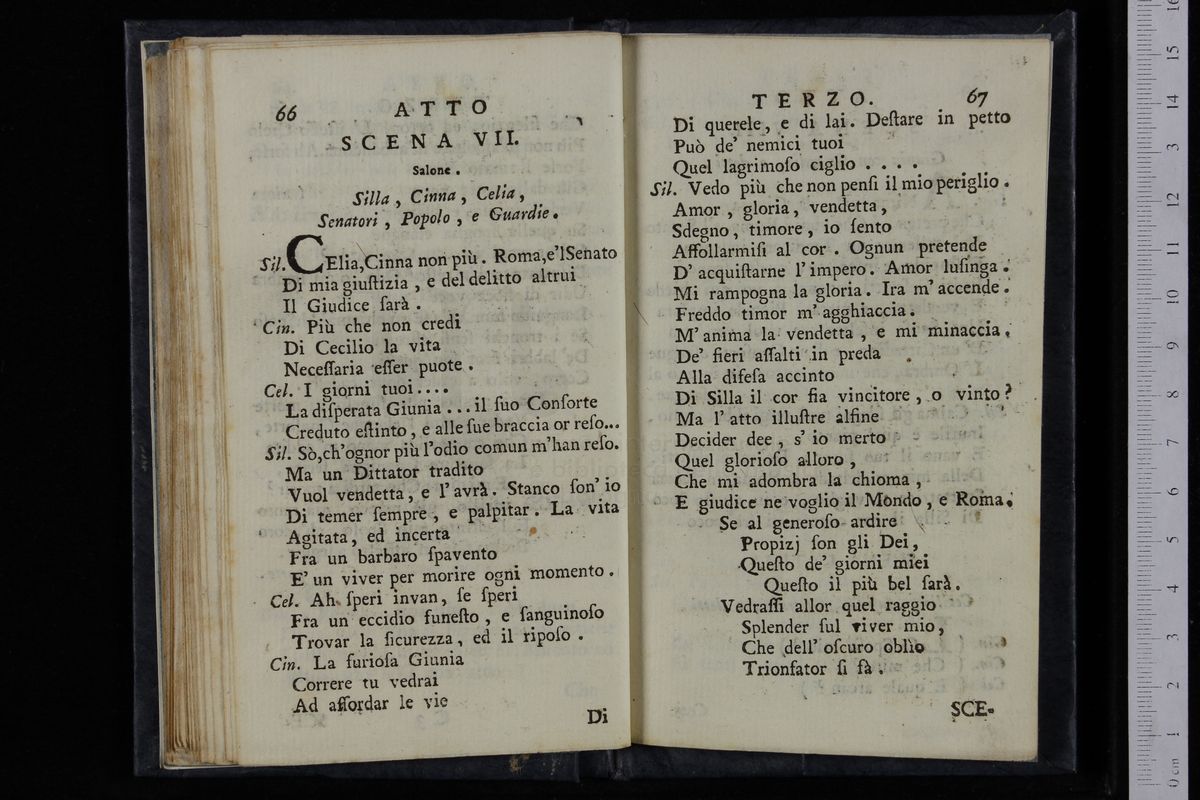 66 ATTO
SCENA VII.
Salone.
Silla, Cinna, Celia,
Senatori, Popolo, e Guardie.
Sil. CElia,Cinna non più. Roma,e'lSenato
Di mia giuſtizia, e del delitto altrui
Il Giudice ſarà.
Cin. Più che non credi
Di Cecilio la vita
Neceſſaria eſſer puote.
Cel. I giorni tuoi....
La diſperata Giunia ...il ſuo Conſorte
Creduto eſtinto, e alle ſue braccia or reſo...
Sil. Sò,ch'ognor più l'odio comun m'han reſo.
Ma un Dittator tradito
Vuol vendetta, e l'avrà. Stanco ſon' io
Di temer ſempre, e palpitar. La vita
Agitata, ed incerta
Fra un barbaro ſpavento
E' un viver per morire ogni momento.
Cel. Ah ſperi invan, ſe ſperi
Fra un eccidio funeſto, e ſanguinoſo
Trovar la ſicurezza, ed il ripoſo.
Cin. La furioſa Giunia
Correre tu vedrai
Ad aſſordar le vie
Di
TERZO. 67
Di querele, e di lai. Deſtare in petto
Può de' nemici tuoi
Quel lagrimoſo ciglio ....
Sil. Vedo più che non penſi il mio periglio.
Amor, gloria, vendetta,
Sdegno, timore, io ſento
Affollarmiſi al cor. Ognun pretende
D' acquiſtarne l'impero. Amor luſinga.
Mi rampogna la gloria. Ira m'accende.
Freddo timor m'agghiaccia.
M' anima la vendetta, e mi minaccia.
De' fieri aſſalti in preda
Alla difeſa accinto
Di Silla il cor fia vincitore, o vinto?
Ma l' atto illuſtre alfine
Decider dee, s' io merto
Quel glorioſo alloro,
Che mi adombra la chioma,
E giudice ne voglio il Mondo, e Roma.
Se al generoſo ardire
Propizj ſon gli Dei,
Queſto de' giorni miei
Queſto il più bel ſarà.
Vedraſſi allor quel raggio
Splender ſul viver mio,
Che dell' oſcuro oblìo
Trionfator ſi fà.
SCE-
0 cm 1 2 3 4 5 6 7 8 9 10 11 12 13 14 15 16